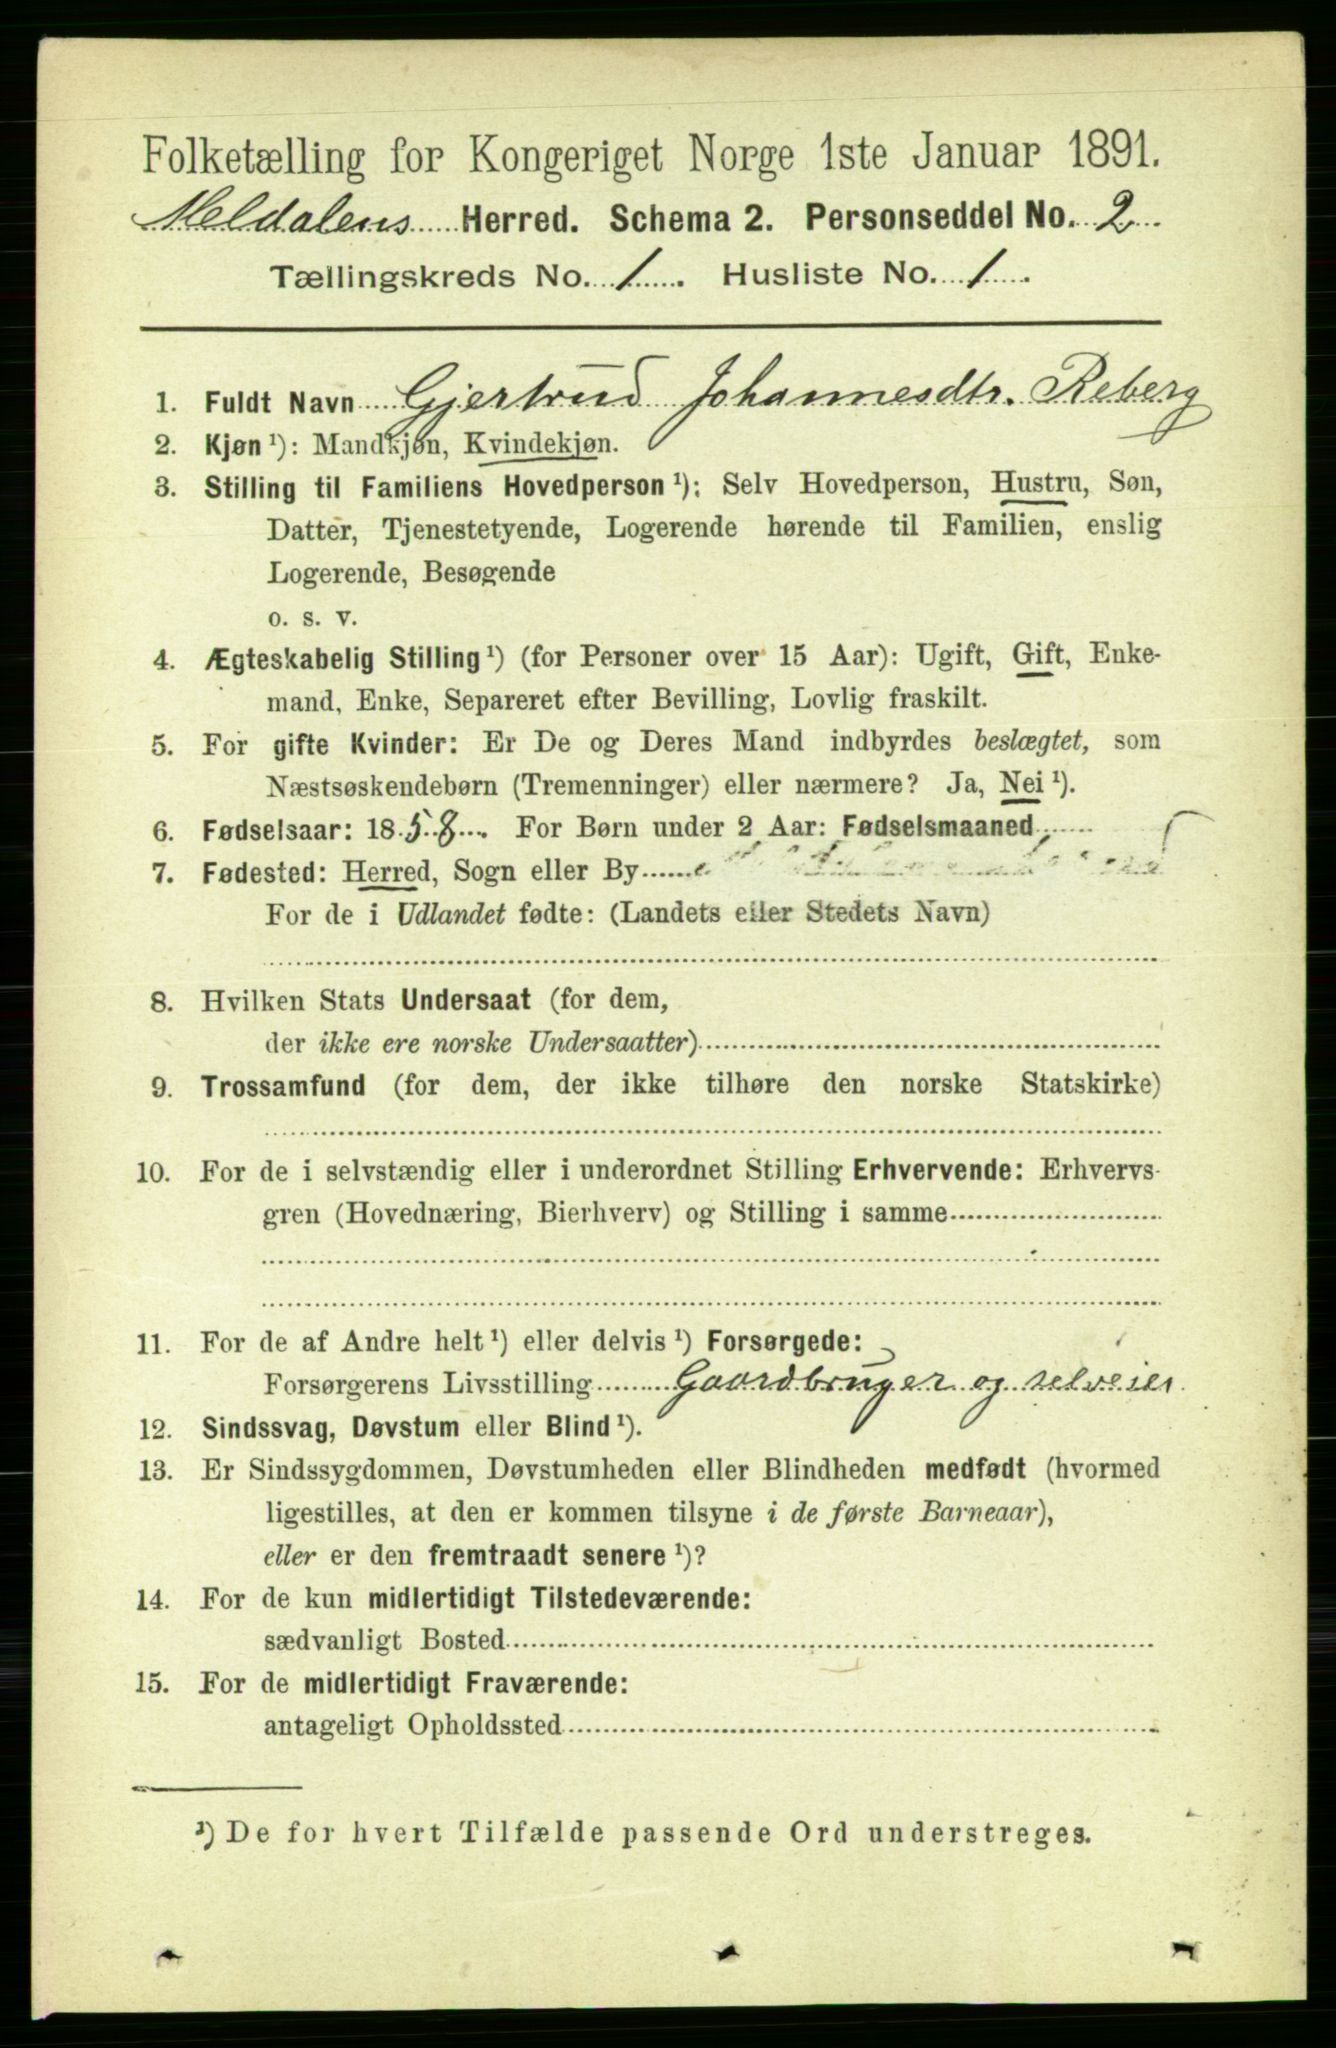 Folketælling for Kongeriget Norge 1ste Januar 1891.
Meldalens Herred. Schema 2. Personseddel No. 2
Tællingskreds No. 1. Husliste No. 1.
1. Fuldt Navn Gjertrud Johannesdtr. Reberg
2. Kjøn ¹): Mandkjøn, Kvindekjøn.
3. Stilling til Familiens Hovedperson ¹): Selv Hovedperson, Hustru, Søn,
Datter, Tjenestetyende, Logerende hørende til Familien, enslig
Logerende, Besøgende
o. s. v.
4. Ægteskabelig Stilling ¹) (for Personer over 15 Aar): Ugift, Gift, Enke-
mand, Enke, Separeret efter Bevilling, Lovlig fraskilt.
5. For gifte Kvinder: Er De og Deres Mand indbyrdes beslægtet, som
Næstsøskendebørn (Tremenninger) eller nærmere? Ja, Nei ¹).
6. Fødselsaar: 1858. For Børn under 2 Aar: Fødselsmaaned
7. Fødested: Herred, Sogn eller By
For de i Udlandet fødte: (Landets eller Stedets Navn)
8. Hvilken Stats Undersaat (for dem,
der ikke ere norske Undersaatter)
9. Trossamfund (for dem, der ikke tilhøre den norske Statskirke)
10. For de i selvstændig eller i underordnet Stilling Erhvervende: Erhvervs-
gren (Hovednæring, Bierhverv) og Stilling i samme
11. For de af Andre helt ¹) eller delvis ¹) Forsørgede:
Forsørgerens Livsstilling Gaardbruger og selveier
12. Sindssvag, Døvstum eller Blind ¹).
13. Er Sindssygdommen, Døvstumheden eller Blindheden medfødt (hvormed
ligestilles, at den er kommen tilsyne i de første Barneaar),
eller er den fremtraadt senere ¹)?
14. For de kun midlertidigt Tilstedeværende:
sædvanligt Bosted
15. For de midlertidigt Fraværende:
antageligt Opholdssted
¹) De for hvert Tilfælde passende Ord understreges.